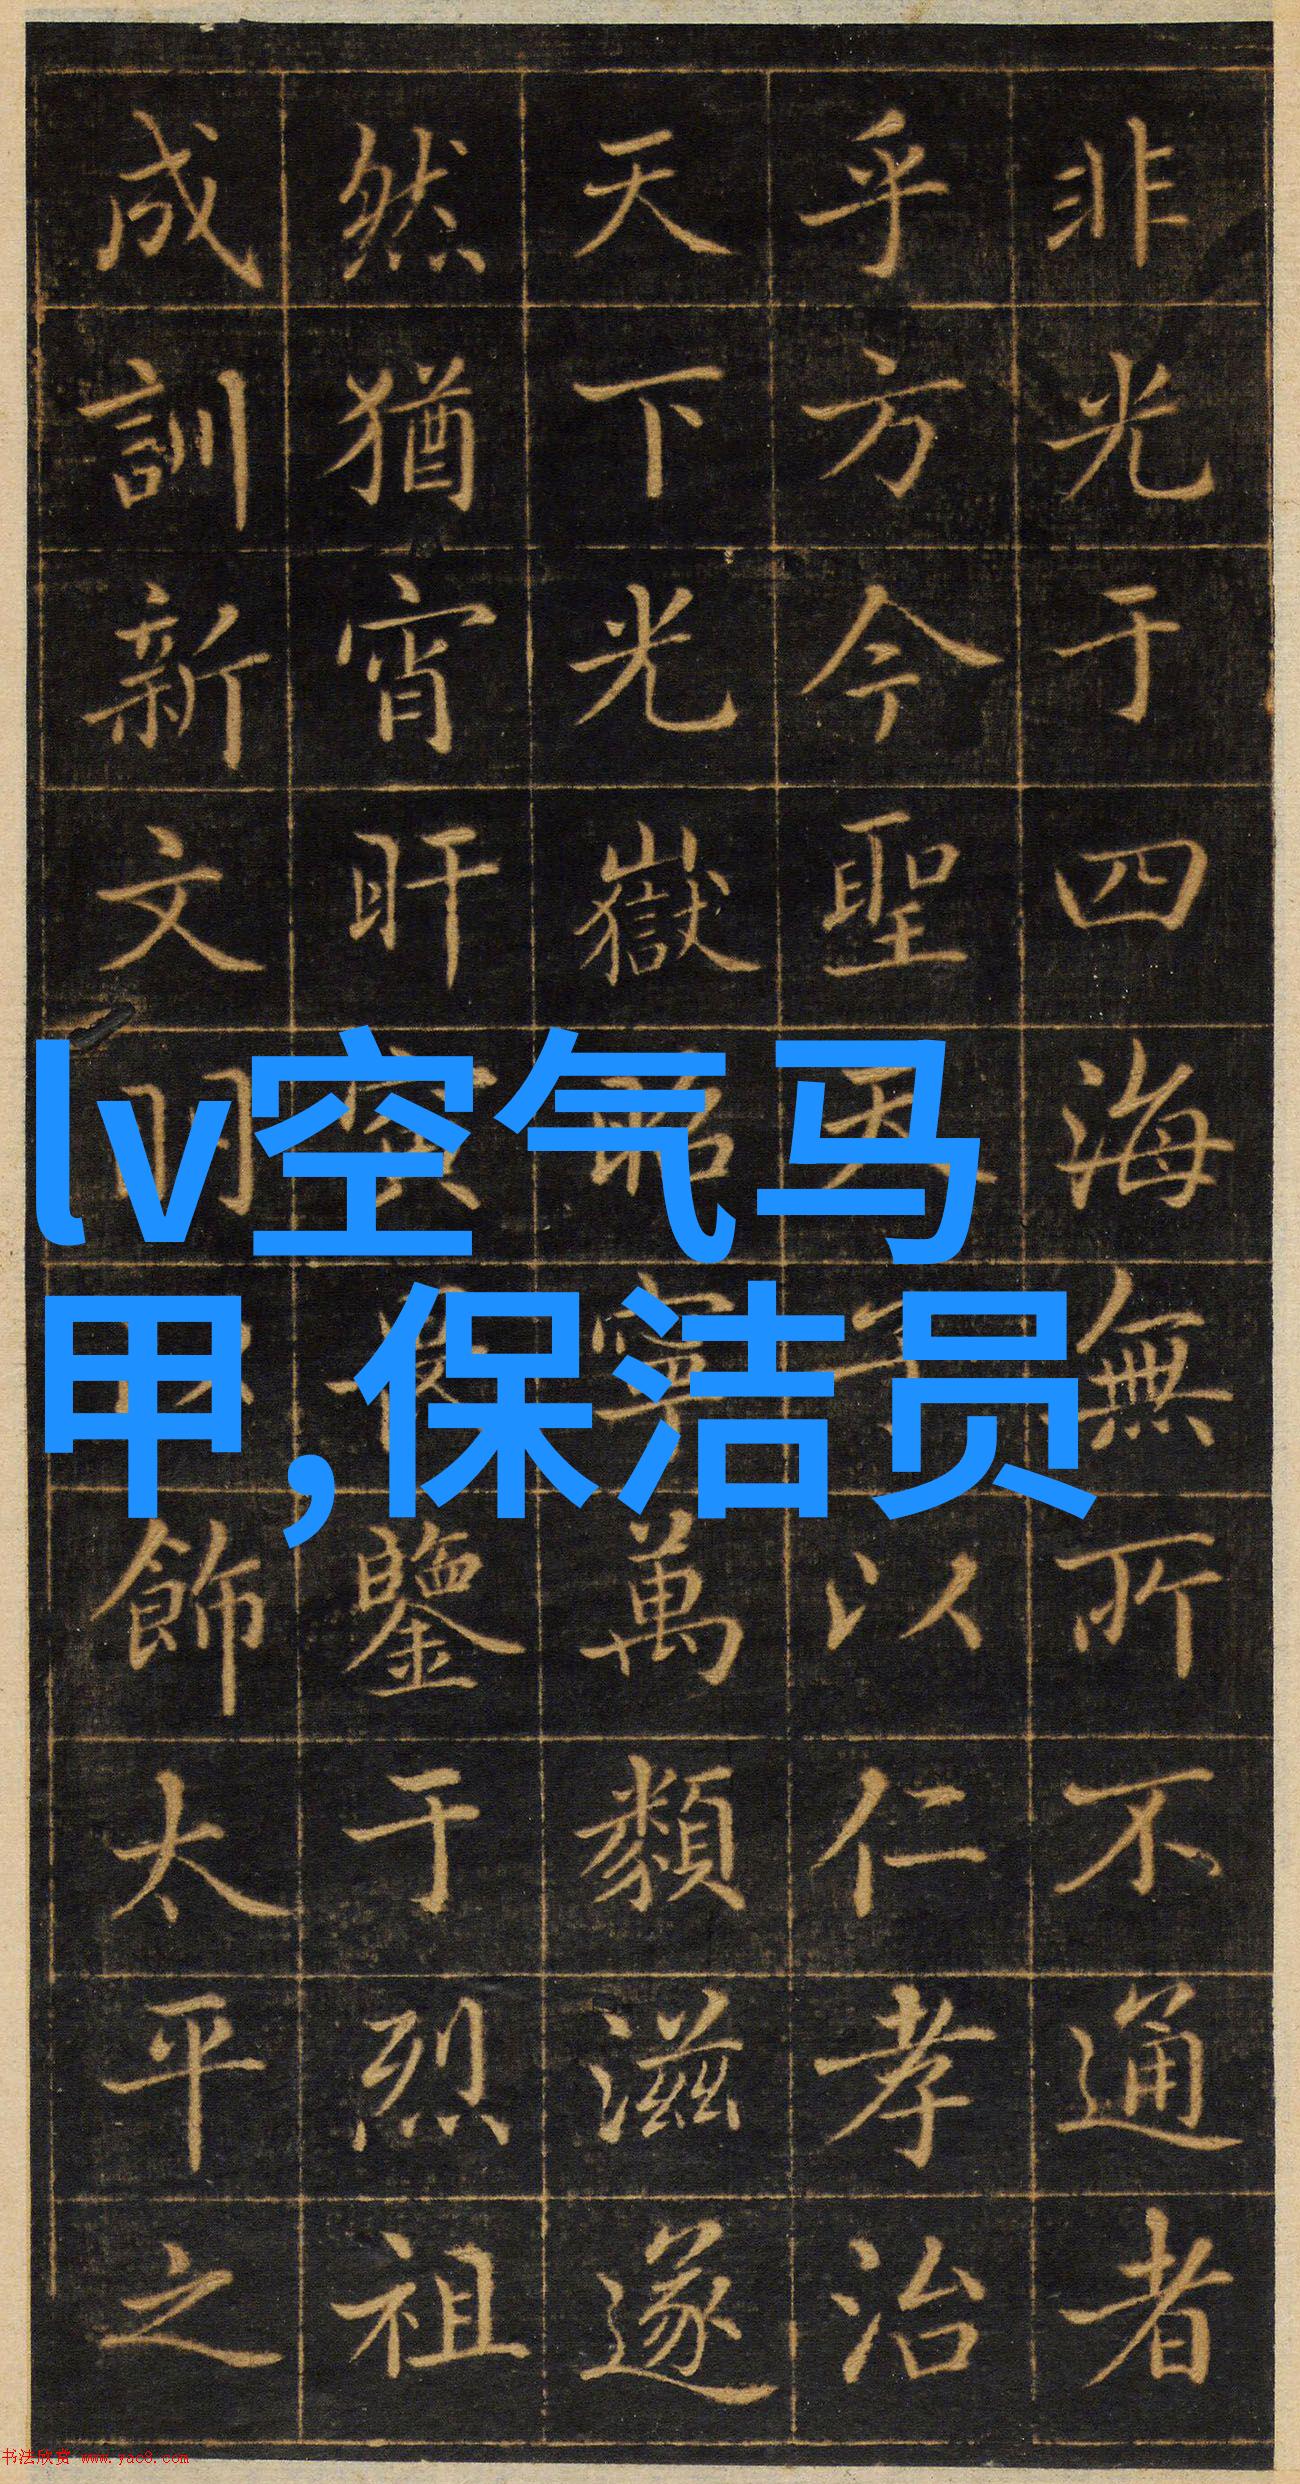 非光于四海無所不通者
乎方今聖天子以仁孝治
天下光嶽寧萬類滋遂
然猶宵旰寅鑒于烈祖
成訓新文明飾太平之
lv空气马
甲,保洁员
书法欣赏 www.yac8.com